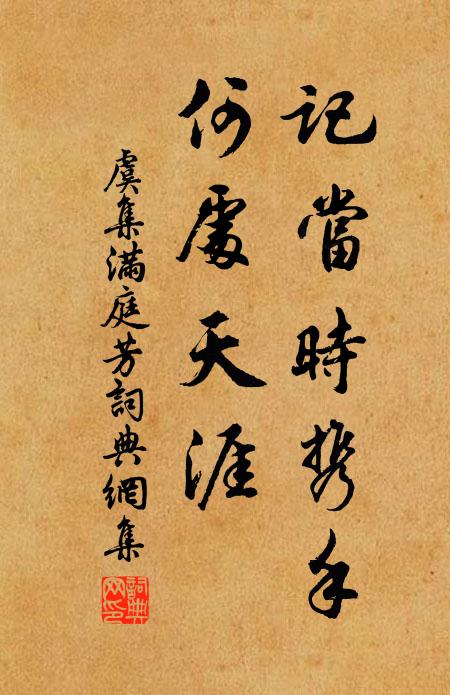 記當時携手
何處天涯
虞集滿庭芳詞典網集
詞典网印